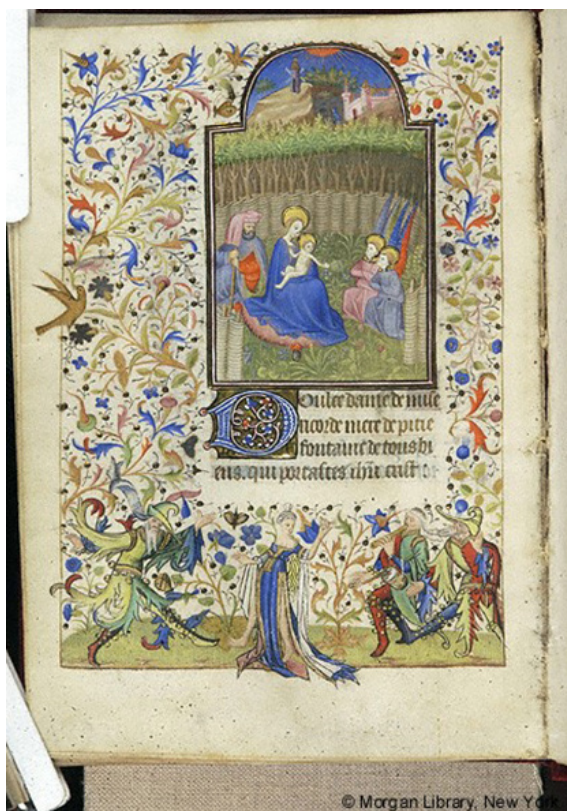 Doulce dame de mise
ricorde mere de pitie
fontaine de tous bi
ens. qui portastes ihu crist
© Morgan Library, New York